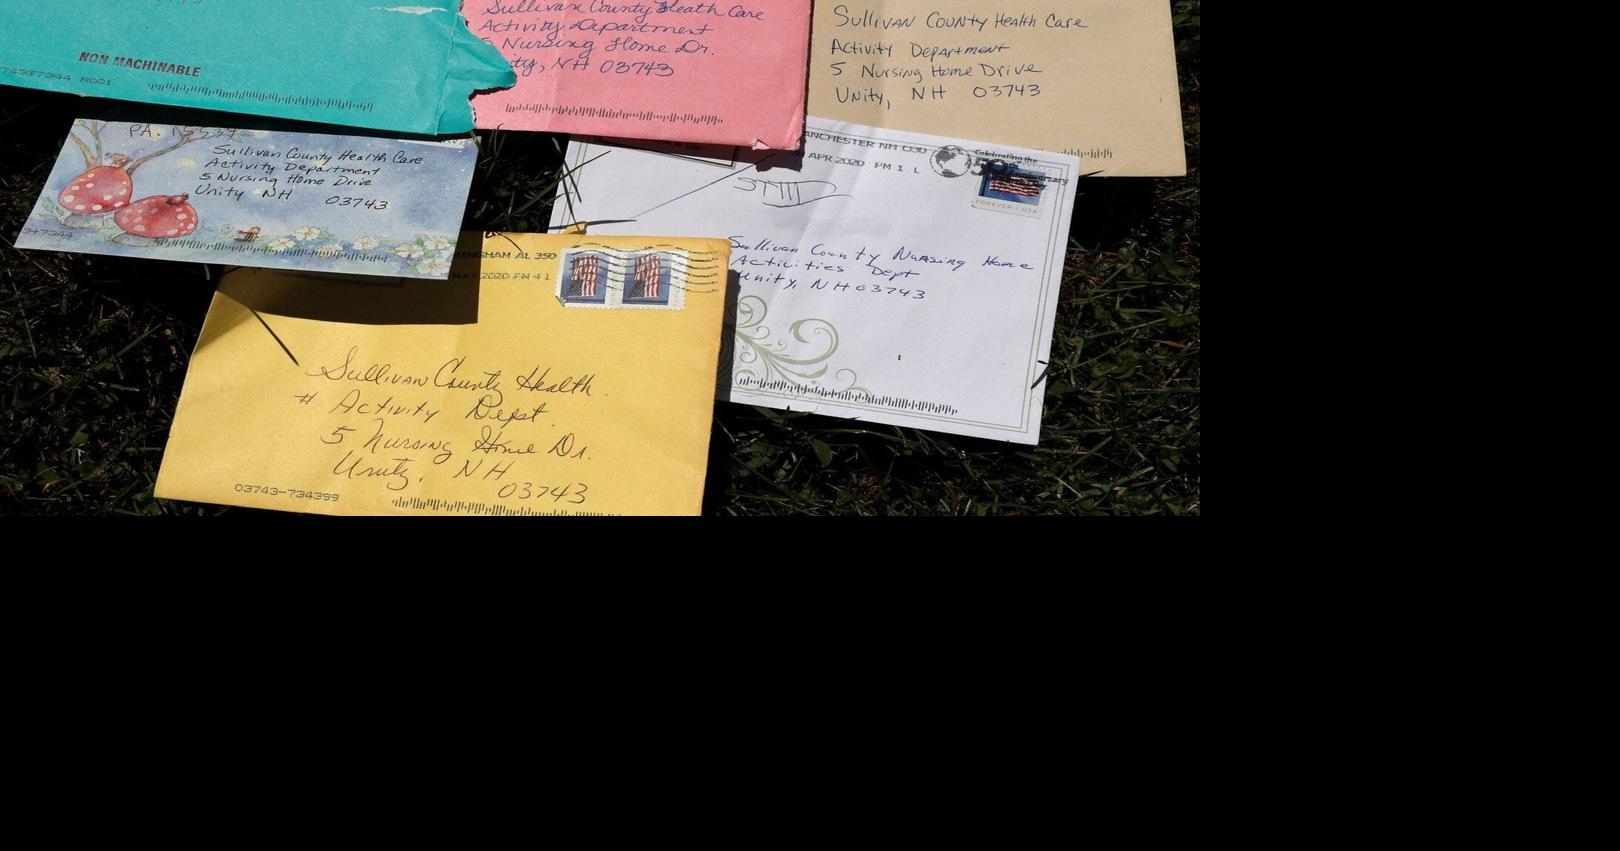 NON MACHINABLE
R001
Sullivan County Heath Care
Activity Department
5 Nursing Home Dr.
NH 03743
Sullivan County Health Care
Activity Department
5 Nursing Home Drive
Unity, NH 03743
PA. 15537
Sullivan County Health Care
Activity Department
5 Nursing Home Drive
Unity NH 03743
ANCHESTER NH 030
APR 2020 PM 1 L
Celebrating the
FOREVER / USA
Sullivan County Nursing Home
Activities Dept
Unity, NH 03743
INGHAM AL 350
MAY 2020 PM 4 1
Sullivan County Health
# Activity Dept.
5 Nursing Home Dr.
Unity, NH
03743
03743-734399